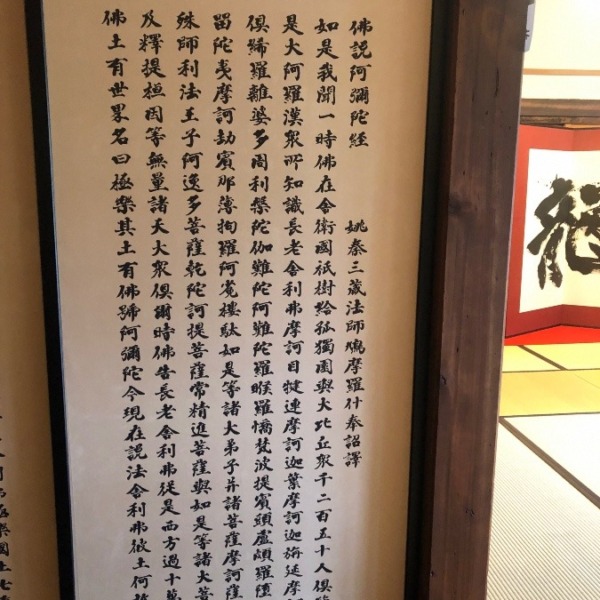 佛説阿彌陀経 姚秦三蔵法師鳩摩羅什奉詔譯
如是我聞一時佛在舎衛國祇樹給孤獨園與大比丘衆千二百五十人倶
是大阿羅漢衆所知識長老舎利弗摩訶目犍連摩訶迦葉摩訶迦旃延摩
倶絺羅離婆多周利槃陀伽難陀阿難陀羅睺羅憍梵波提賓頭盧頗羅堕
留陀夷摩訶劫賓那薄拘羅阿㝹樓駄如是等諸大弟子并諸菩薩摩訶薩
殊師利法王子阿逸多菩薩乾陀訶提菩薩常精進菩薩與如是等諸大菩
及釋提桓因等無量諸天大衆倶爾時佛告長老舎利弗従是西方過十萬
佛土有世界名曰極樂其土有佛號阿彌陀今現在説法舎利弗彼土何故
極樂國土七